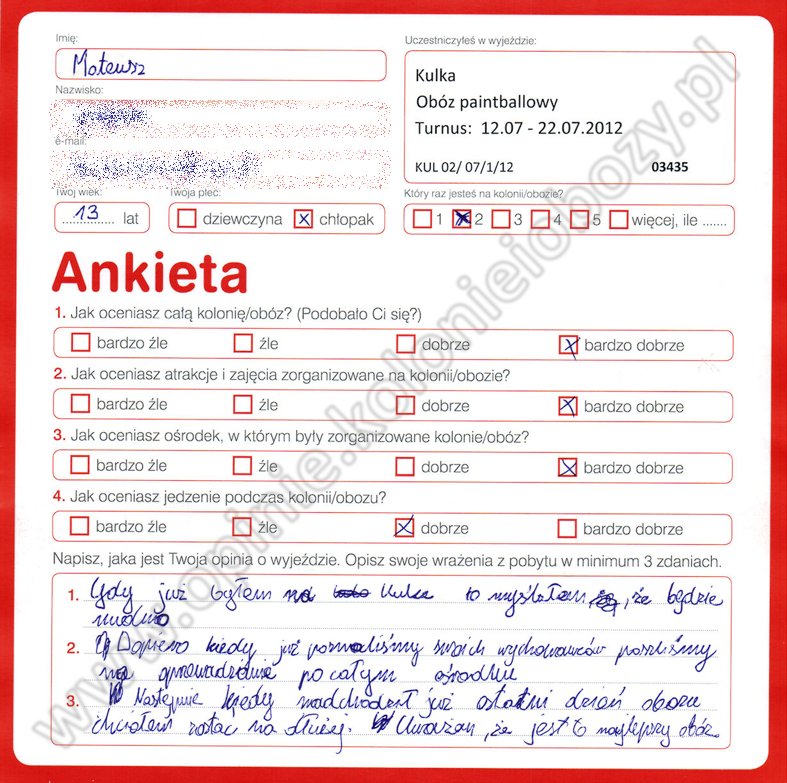 Imię:
Mateusz
Nazwisko:
e-mail:
Twój wiek:
13 lat
Twoja płeć:
dziewczyna chłopak
Uczestniczyłeś w wyjeździe:
Kulka
Obóz paintballowy
Turnus: 12.07 - 22.07.2012
KUL 02/ 07/1/12 03435
Który raz jesteś na kolonii/obozie?
1 2 3 4 5 więcej, ile .......
Ankieta
1. Jak oceniasz całą kolonię/obóz? (Podobało Ci się?)
bardzo źle źle dobrze bardzo dobrze
2. Jak oceniasz atrakcje i zajęcia zorganizowane na kolonii/obozie?
bardzo źle źle dobrze bardzo dobrze
3. Jak oceniasz ośrodek, w którym były zorganizowane kolonie/obóz?
bardzo źle źle dobrze bardzo dobrze
4. Jak oceniasz jedzenie podczas kolonii/obozu?
bardzo źle źle dobrze bardzo dobrze
Napisz, jaka jest Twoja opinia o wyjeździe. Opisz swoje wrażenia z pobytu w minimum 3 zdaniach.
1. Gdy już byłem na Kulka to myślałem, że będzie
nudno
2. Dopiero kiedy już poznaliśmy swoich wychowawców poszliśmy
na oprowadzenie po całym ośrodku
3. Następnie kiedy nadchodził już ostatni dzień obozu
chciałem zostać na dłużej. Uważam, że jest to najlepszy obóz.
www.opinie.kolonieiobozy.pl